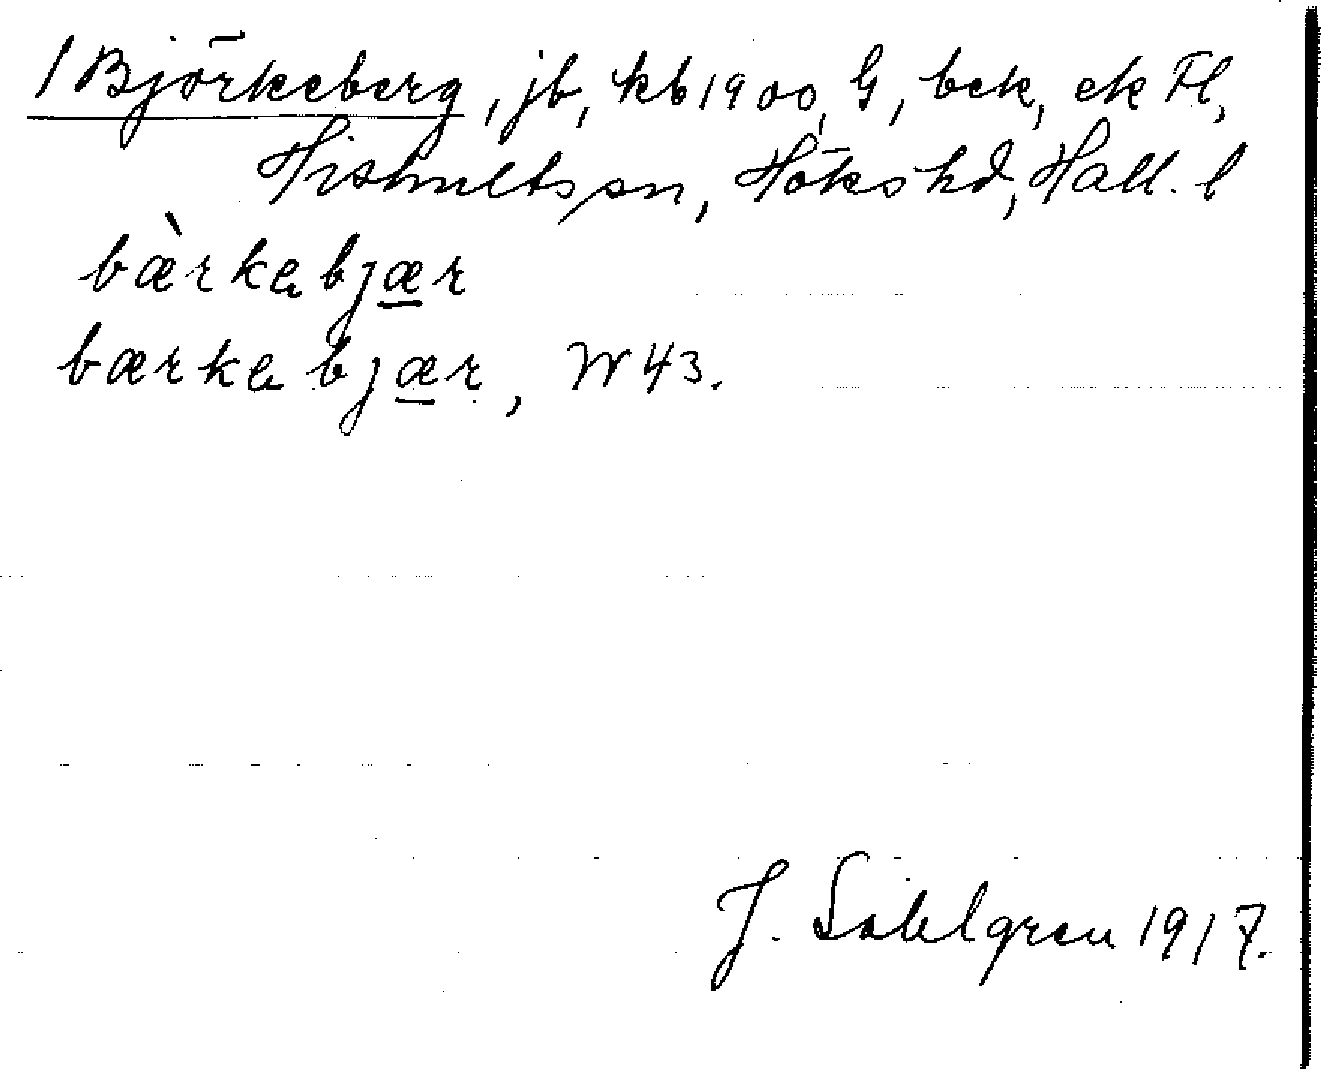 / Björkeberg, jb, kb 1900, G, bek, ek Fl,
Hishults sn, Höks hd, Hall. l
bæ̀rkabjær
bærkabjær, W 43.
J. Sahlgren 1917.